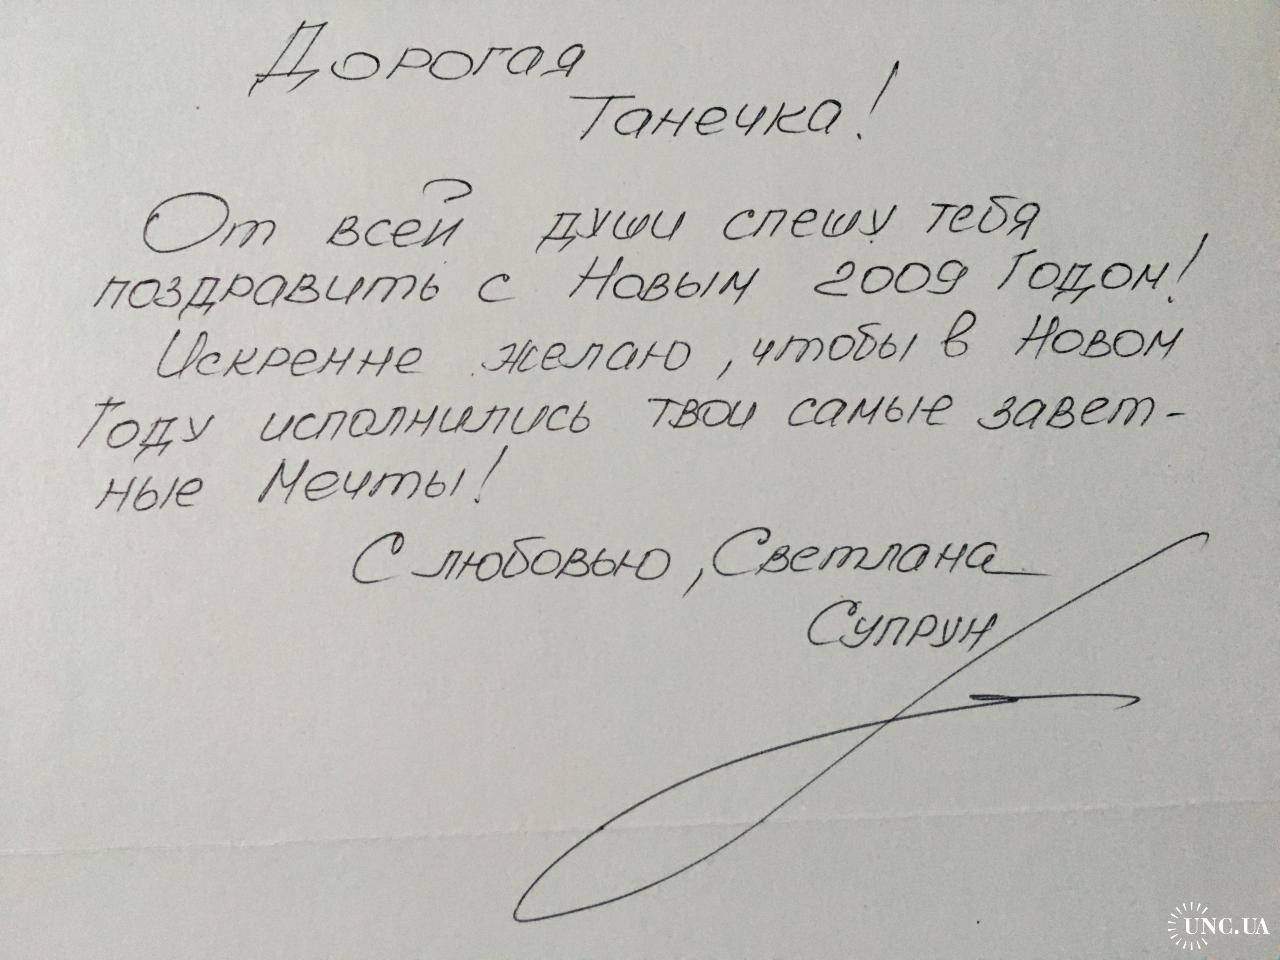 Дорогая
Танечка!
От всей души спешу тебя
поздравить с Новым 2009 Годом!
Искренне желаю, чтобы в Новом
Году исполнились твои самые завет-
ные Мечты!
С любовью, Светлана
Супрун
UNC.UA